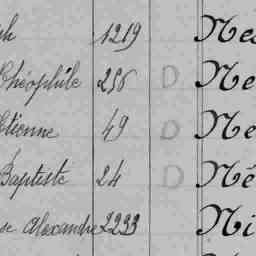 ph 1219 Nes
Théophile 256 D Ne
Etienne 49 D Ne
Baptiste 24 D Né
se Alexandre 2233 Ni